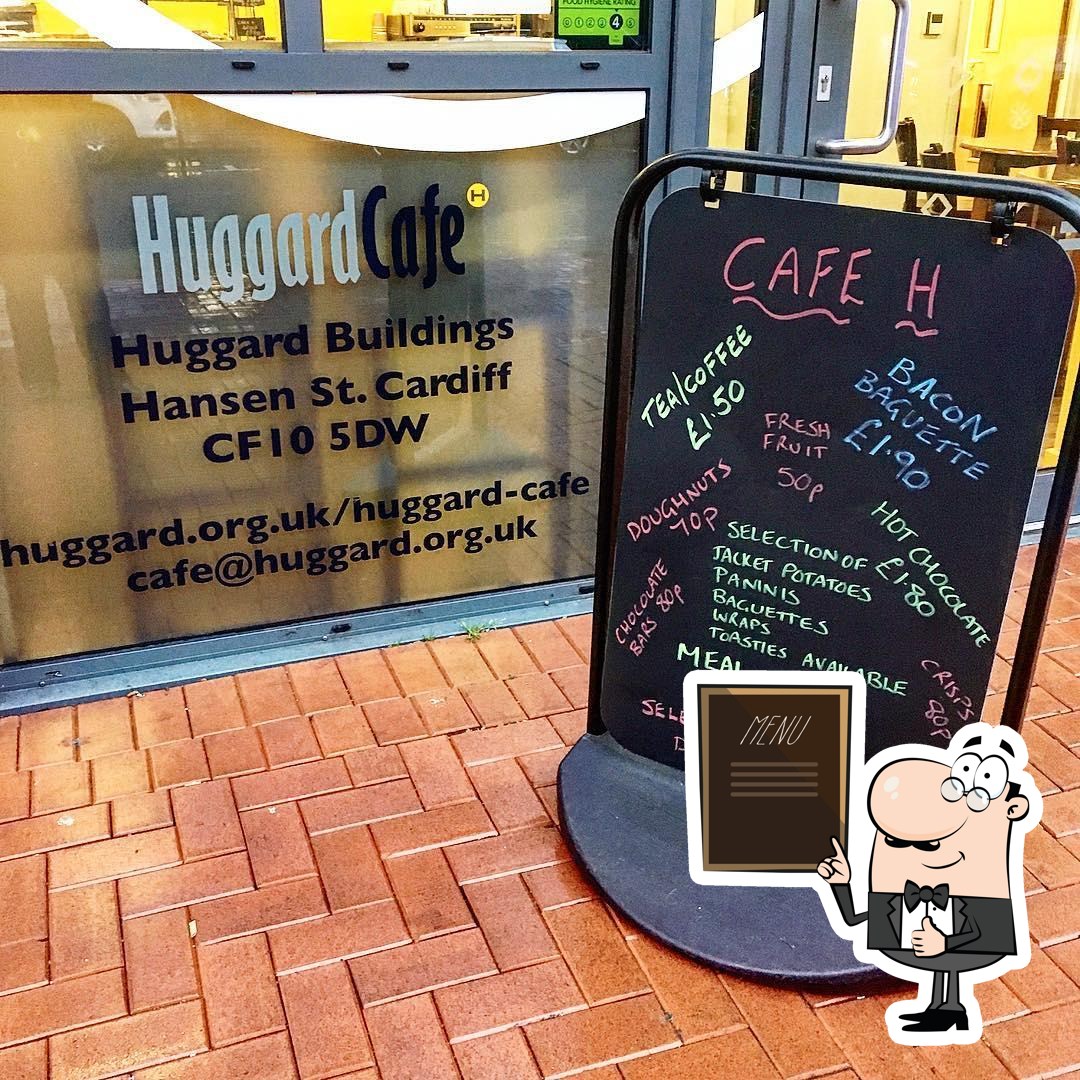 FOOD HYGIENE RATING
0 1 2 3 4 5
HuggardCafe
H
Huggard Buildings
Hansen St. Cardiff
CF10 5DW
huggard.org.uk/huggard-cafe
cafe@huggard.org.uk
CAFE H
TEA/COFFEE
£1.50
BACON
BAGUETTE
£1.90
FRESH
FRUIT
50p
DOUGHNUTS
70p
HOT CHOCOLATE
£1.80
SELECTION OF
JACKET POTATOES
PANINIS
BAGUETTES
WRAPS
TOASTIES AVAILABLE
CHOCOLATE
BARS 80p
CRISPS
80p
MENU